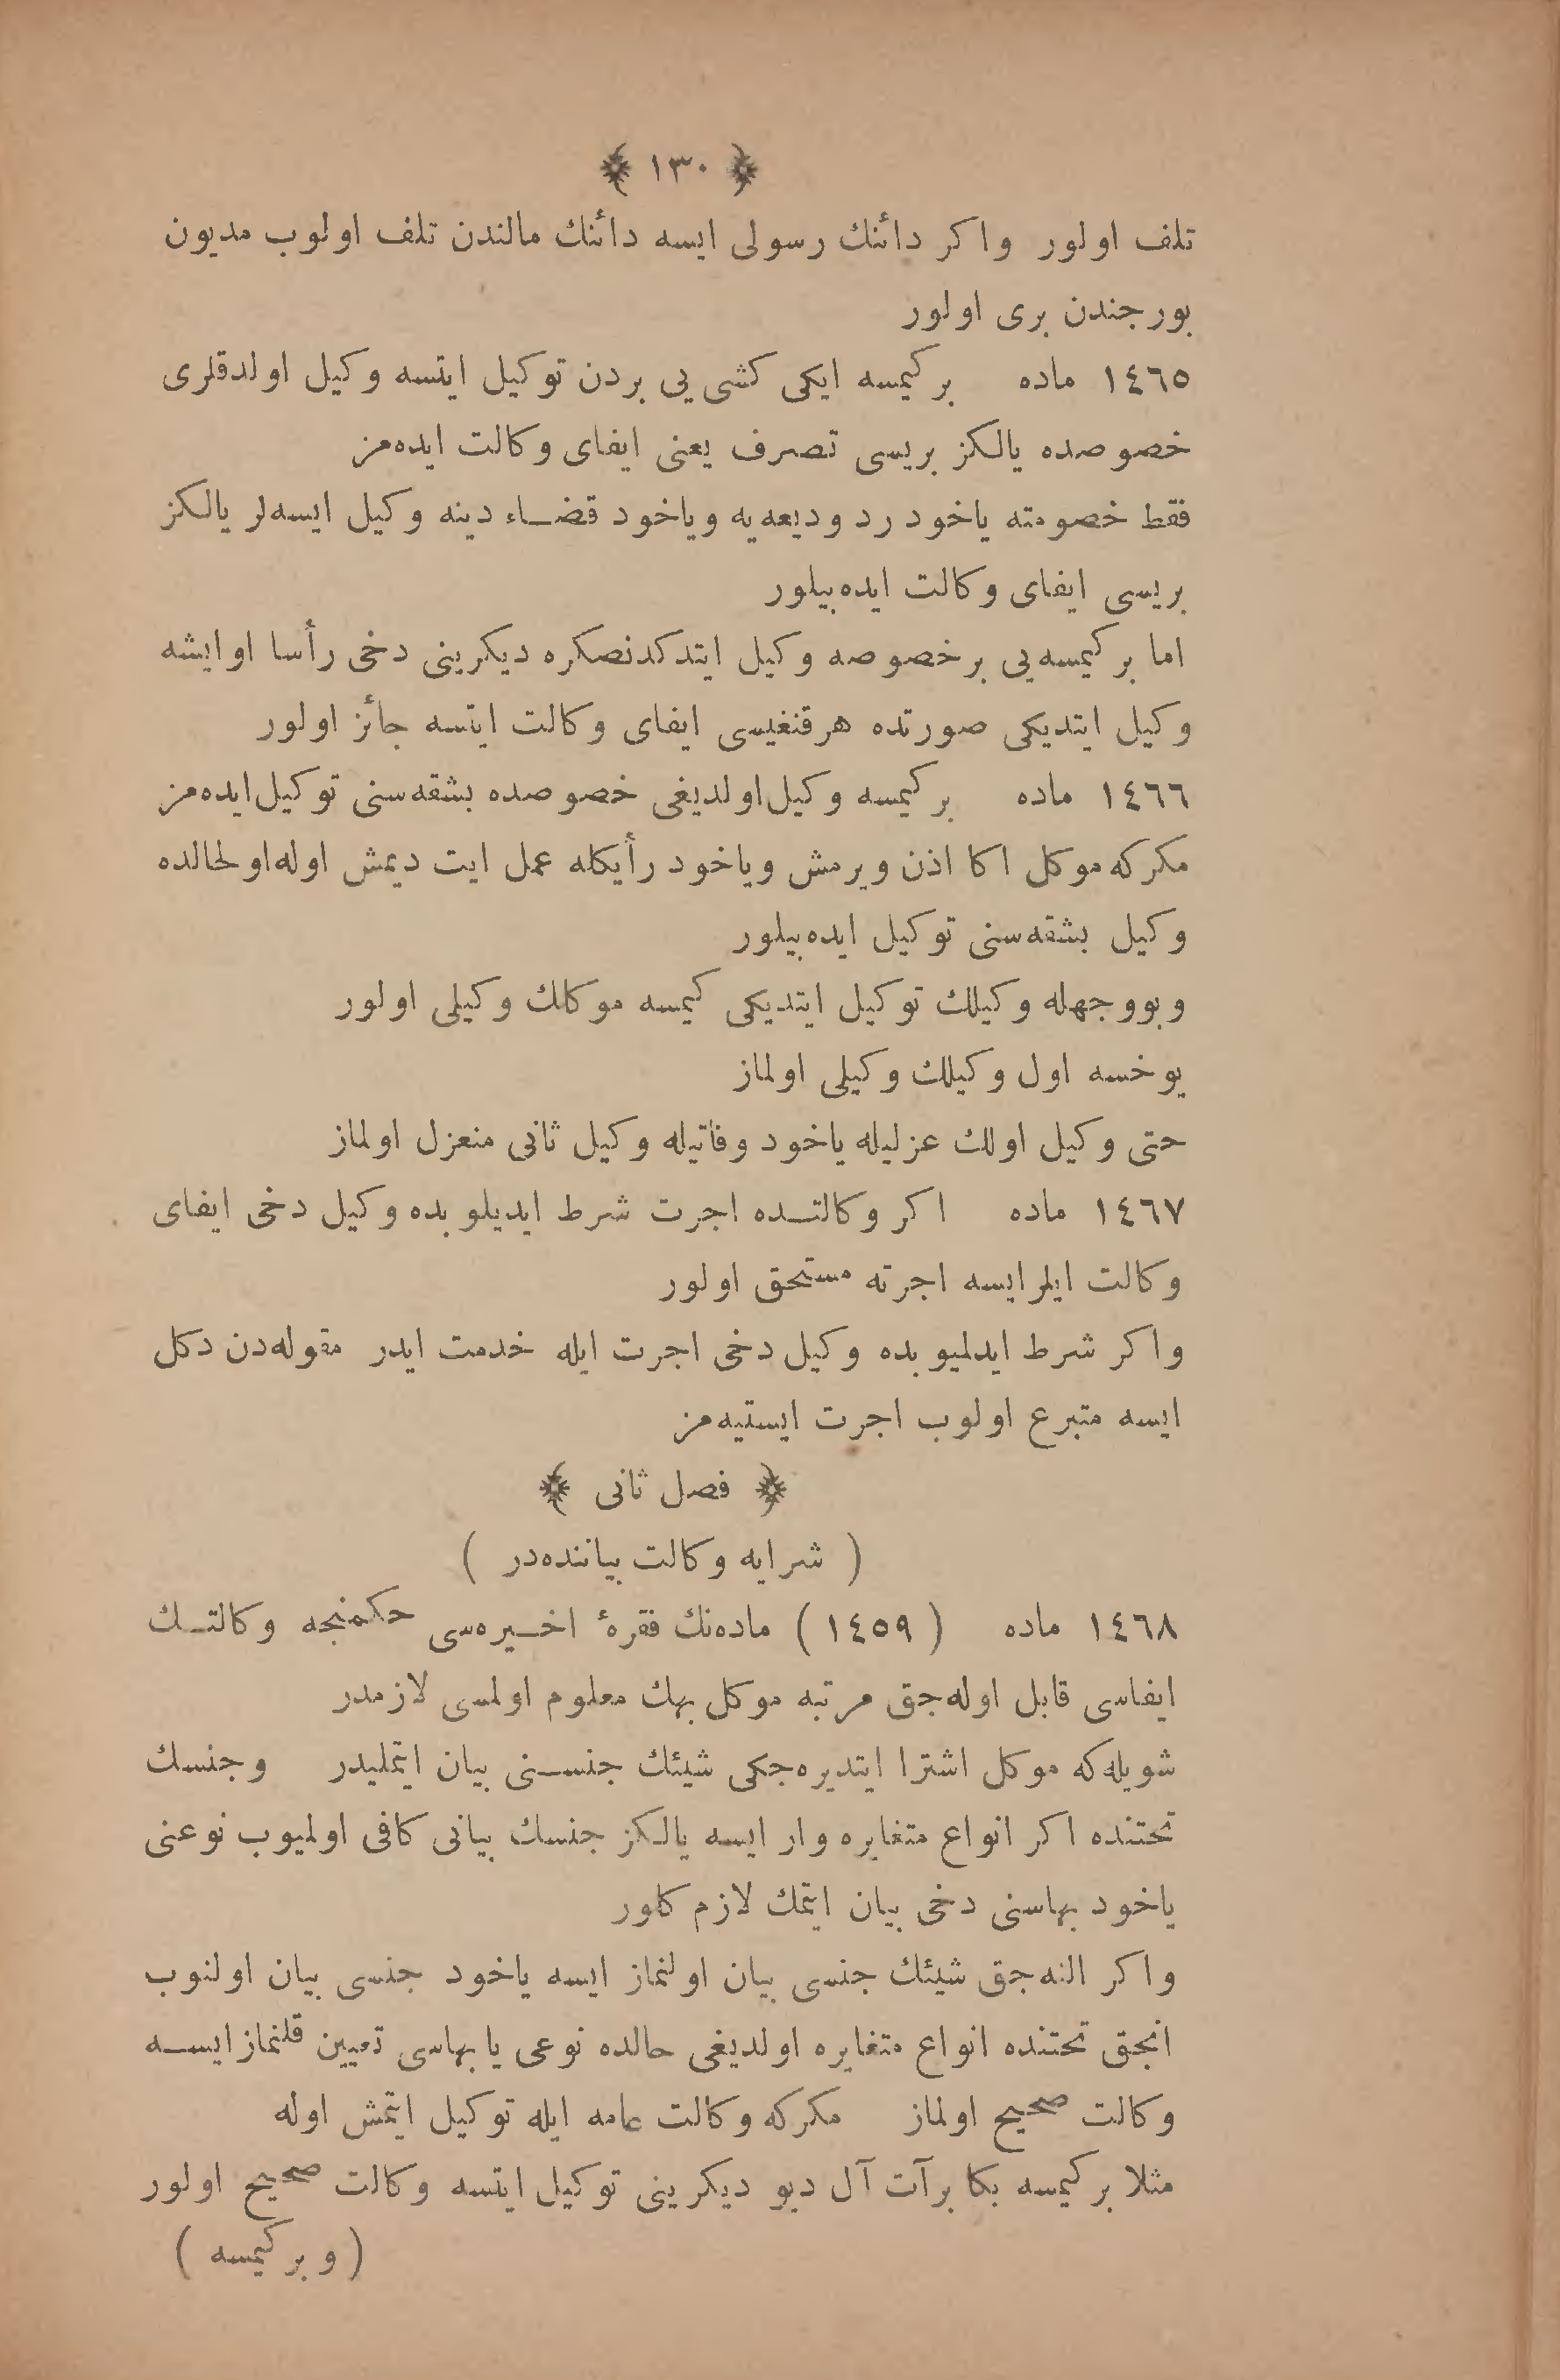 ﴿ ١٣٠ ﴾
تلف اولور واكر دائنك رسولى ايسه دائنك مالندن تلف اولوب مديون
بورجندن برى اولور
١٤٦٥ ماده بركيمسه ايكى كشى يى بردن توكيل ايتسه وكيل اولدقلرى
خصوصده يالكز بريسى تصرف يعنى ايفاى وكالت ايده‌مز
فقط خصومته ياخود رد وديعه‌يه وياخود قضاء دينه وكيل ايسه‌لر يالكز
بريسى ايفاى وكالت ايده‌بيلور
اما بركيمسه‌يى برخصوصه وكيل ايتدكدنصكره ديكرينى دخى رأسا اوايشه
وكيل ايتديكى صورتده هرقنغيسى ايفاى وكالت ايتسه جائز اولور
١٤٦٦ ماده بركيمسه وكيل اولديغى خصوصده بشقه‌سنى توكيل ايده‌مز
مكركه موكل اكا اذن ويرمش وياخود رأيكله عمل ايت ديمش اوله اولحالده
وكيل بشقه‌سنى توكيل ايده‌بيلور
وبووجهله وكيلك توكيل ايتديكى كيمسه موكلك وكيلى اولور
يوخسه اول وكيلك وكيلى اولماز
حتى وكيل اولك عزليله ياخود وفاتيله وكيل ثانى منعزل اولماز
١٤٦٧ ماده اكر وكالتده اجرت شرط ايديلوبده وكيل دخى ايفاى
وكالت ايلرايسه اجرته مستحق اولور
واكر شرط ايدلميوبده وكيل دخى اجرت ايله خدمت ايدر مقوله‌دن دكل
ايسه متبرع اولوب اجرت ايستيه‌مز
﴿ فصل ثانى ﴾
( شرايه وكالت بياننده‌در )
١٤٦٨ ماده ( ١٤٥٩ ) ماده‌نك فقرهٔ اخيره‌سى حكمنجه وكالتك
ايفاسى قابل اوله‌جق مرتبه موكل بهك معلوم اولمسى لازمدر
شويله‌كه موكل اشترا ايتديره‌جكى شيئك جنسنى بيان ايتمليدر وجنسك
تحتنده اكر انواع متغايره وار ايسه يالكز جنسك بيانى كافى اولميوب نوعنى
ياخود بهاسنى دخى بيان ايتمك لازم كلور
واكر النه‌جق شيئك جنسى بيان اولنماز ايسه ياخود جنسى بيان اولنوب
انجق تحتنده انواع متغايره اولديغى حالده نوعى يا بهاسى تعيين قلنماز ايسه
وكالت صحيح اولماز مكركه وكالت عامه ايله توكيل ايتمش اوله
مثلا بركيمسه بكا برآت آل ديو ديكرينى توكيل ايتسه وكالت صحيح اولور
( و بركيمسه )